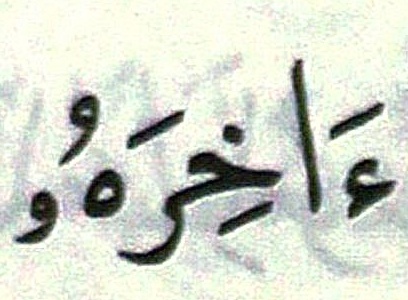 ءَاخِرَهُۥ